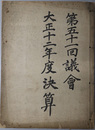 第五十一回議會
大正十二年度決算